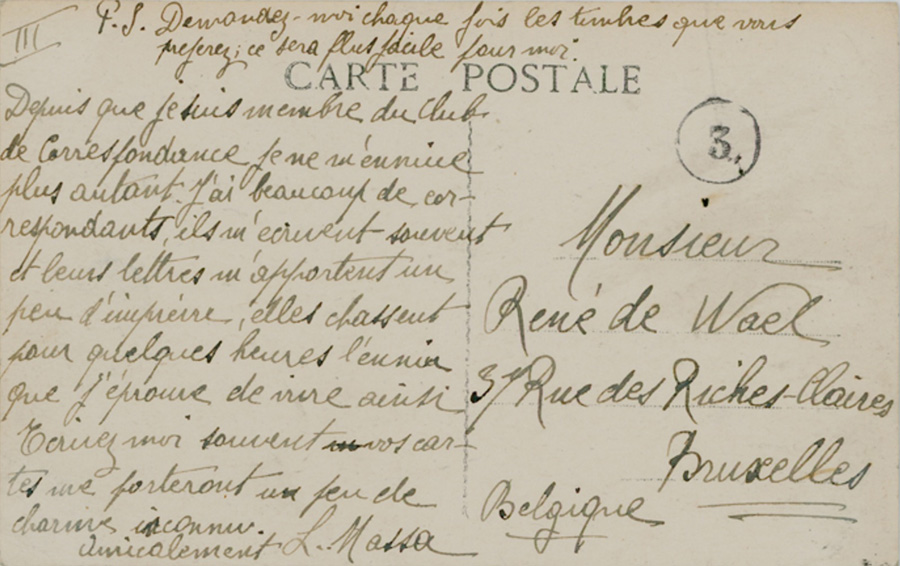 III
P. S. Demandez-moi chaque fois les timbres que vous
preferez; ce sera plus facile pour moi.
CARTE POSTALE
3.
Depuis que je suis membre du Club
de Correspondance je ne m'ennuie
plus autant. J'ai beaucoup de cor-
respondants, ils m'ecrivent souvent
et leurs lettres m'apportent un
peu d'imprévu, elles chassent
pour quelques heures l'ennui
que j'éprouve de vivre ainsi
Ecrivez moi souvent vos car-
tes me porteront un peu de
charme inconnu.
Amicalement L. Massa
Monsieur
René de Wael
37 Rue des Riches-Claires
Bruxelles
Belgique